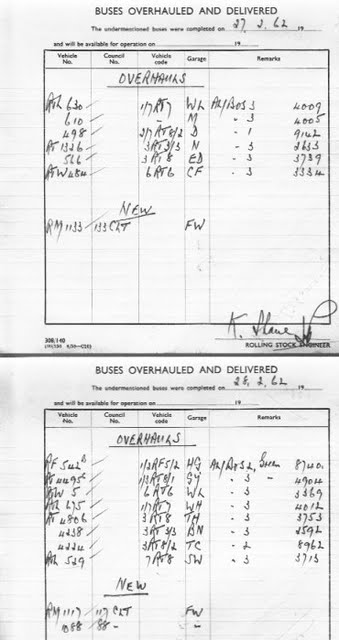 BUSES OVERHAULED AND DELIVERED
The undermentioned buses were completed on 27. 2. 62 19
and will be available for operation on 19
Vehicle No. Council No. Vehicle code Garage Remarks
OVERHAULS
630 1/7RT7 WL 3 4009
610 - M - 3 4005
498 2/7 RT8/2 D - 1 9142
RT 1326 3RT3/3 N - 3 2633
566 3RT8 ED - 3 3739
RTW 484 6RT6 CF - 3 3334
NEW
RM 1133 133 CLT FW
K. Shave
308/140
ROLLING STOCK ENGINEER
BUSES OVERHAULED AND DELIVERED
The undermentioned buses were completed on 28. 2. 62 19
and will be available for operation on 19
Vehicle No. Council No. Vehicle code Garage Remarks
OVERHAULS
RF 542 1/2RF5/2 HG Green 8740
4495 GY - 3 - 4904
5 6RT6 WL - 3 3369
675 1/7RT7 WH - 3 4012
RT 4806 3RT8 TH - 3 3753
4238 3RT3/3 BN - 3 2592
4224 3RT8/2 TC - 2 8962
529 7RT8 SW - 3 3713
NEW
RM 1117 117 CLT FW
1088 88 - -